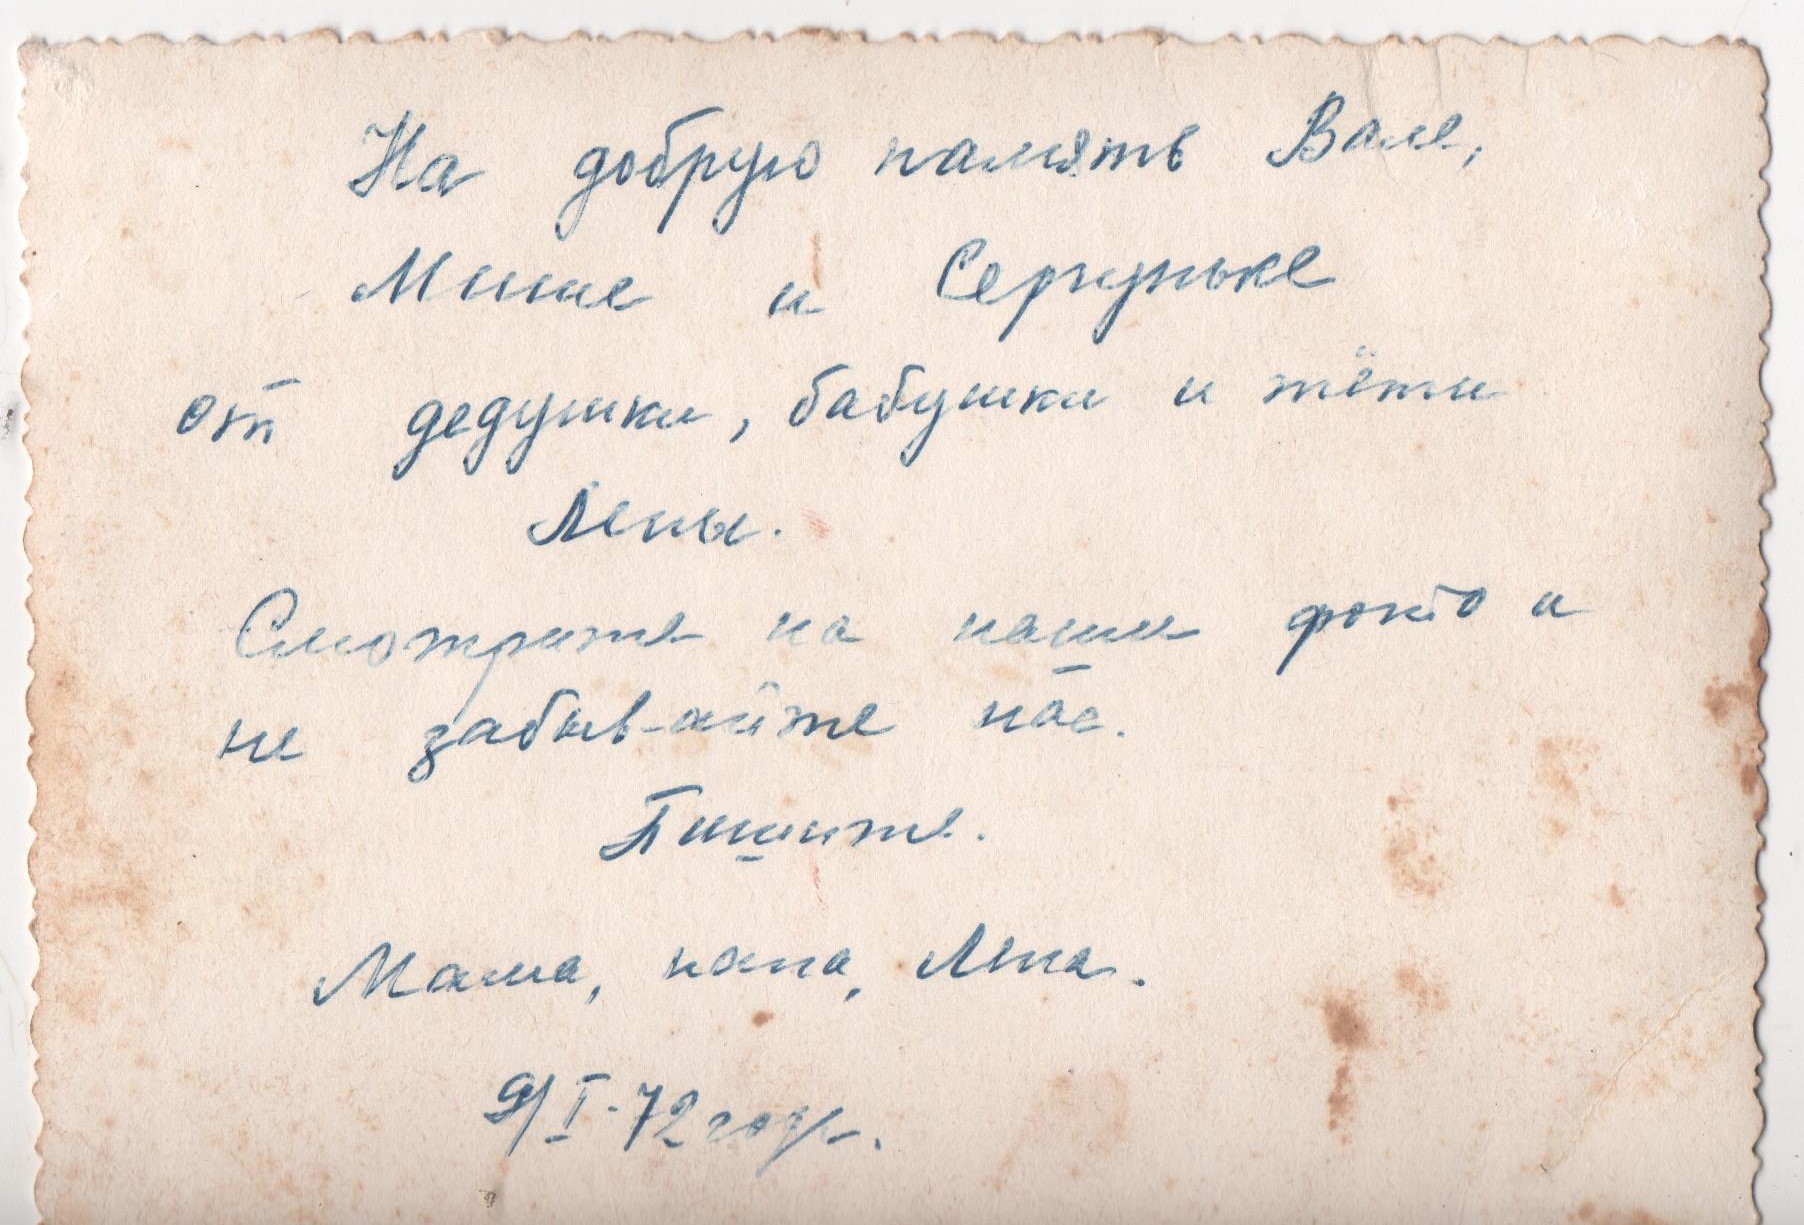 На добрую память Вале,
Мише и Сергуньке
от дедушки, бабушки и тёти
Лены.
Смотрите на наши фото и
не забыв-айте нас.
Пишите.
Мама, папа, Лена.
9/I-72 года.